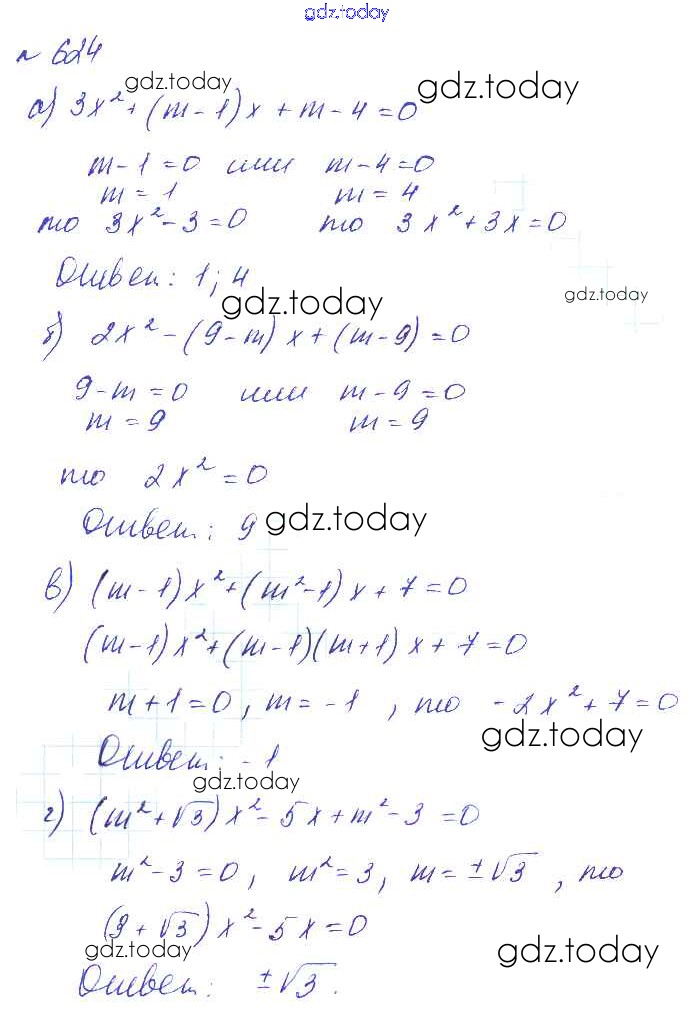 gdz.today
№ 624
gdz.today gdz.today
а) 3x² + (m - 1)x + m - 4 = 0
m - 1 = 0 или m - 4 = 0
m = 1 m = 4
то 3x² - 3 = 0 то 3x² + 3x = 0
Ответ: 1; 4
gdz.today gdz.today
б) 2x² - (9 - m)x + (m - 9) = 0
9 - m = 0 или m - 9 = 0
m = 9 m = 9
то 2x² = 0
Ответ: 9 gdz.today
в) (m - 1)x² + (m² - 1)x + 7 = 0
(m - 1)x² + (m - 1)(m + 1)x + 7 = 0
m + 1 = 0, m = -1, то -2x² + 7 = 0
gdz.today
Ответ: -1
gdz.today
г) (m² + √3)x² - 5x + m² - 3 = 0
m² - 3 = 0, m² = 3, m = ±√3, то
(3 + √3)x² - 5x = 0
gdz.today gdz.today
Ответ: ±√3.